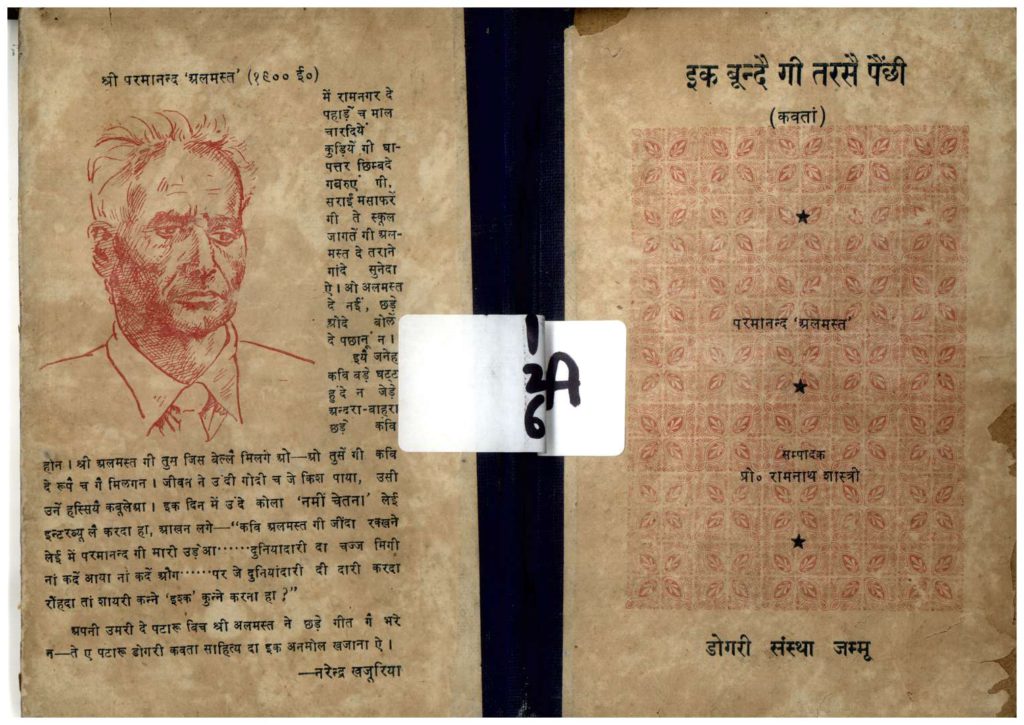 श्री परमानन्द ‘अलमस्त’ (१९०० ई०)
में रामनगर दे
पहाड़ें च माल
चारदियें
कुड़ियें गी घा-
पत्तर छिम्बदे
गबरुएं गी,
सराईं मसाफरें
गी ते स्कूल
जागतें गी अल-
मस्त दे तराने
गांदे सुनेदा
ऐ। ओ अलमस्त
दे नईं, छड़े
ओदे बोलें
दे पछानूं न।
इयै जनेह
कवि बड़े घट्ट
हुंदे न जेड़े
अन्दरा-बाहरा
छड़े कवि
होन। श्री अलमस्त गी तुम जिस बेल्लै मिलगे ओ—ओ तुसें गी कवि
दे रूपै च गै मिलगन। जीवन ने उंदी गोदी च जे किश पाया, उसी
उनें हस्सियै कबूलेआ। इक दिन में उंदे कोला ‘नमीं चेतना’ लेई
इन्टरव्यू लै करदा हा, आखन लगे—“कवि अलमस्त गी जींदा रक्खने
लेई में परमानन्द गी मारी उड़ेआ······दुनियादारी दा चज्ज मिगी
नां कदें आया नां कदें औग······पर जे दुनियांदारी दी दारी करदा
रौंहदा तां शायरी कन्ने ‘इश्क’ कुन्ने करना हा ?”
अपनी उमरी दे पटारू विच श्री अलमस्त ने छड़े गीत गै भरे
न—ते ए पटारू डोगरी कवता साहित्य दा इक अनमोल खजाना ऐ।
—नरेन्द्र खजूरिया
1
2A
6
इक बून्दै गी तरसै पैंछी
(कवतां)
परमानन्द ‘अलमस्त’
सम्पादक
प्रो० रामनाथ शास्त्री
डोगरी संस्था जम्मू